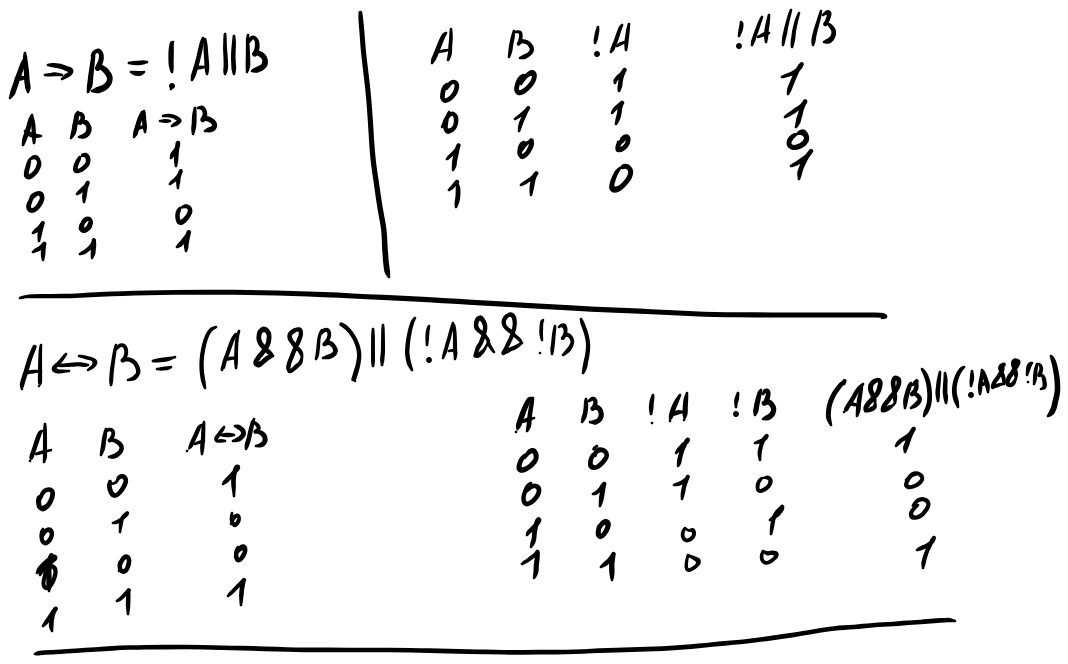 A ⇒ B = !A||B
A B A ⇒ B
0 0 1
0 1 1
1 0 0
1 1 1
A B !A !A||B
0 0 1 1
0 1 1 1
1 0 0 0
1 1 0 1
A ⇔ B = (A&&B)||(!A&&!B)
A B A⇔B
0 0 1
0 1 0
1 0 0
1 1 1
A B !A !B (A&&B)||(!A&&!B)
0 0 1 1 1
0 1 1 0 0
1 0 0 1 0
1 1 0 0 1